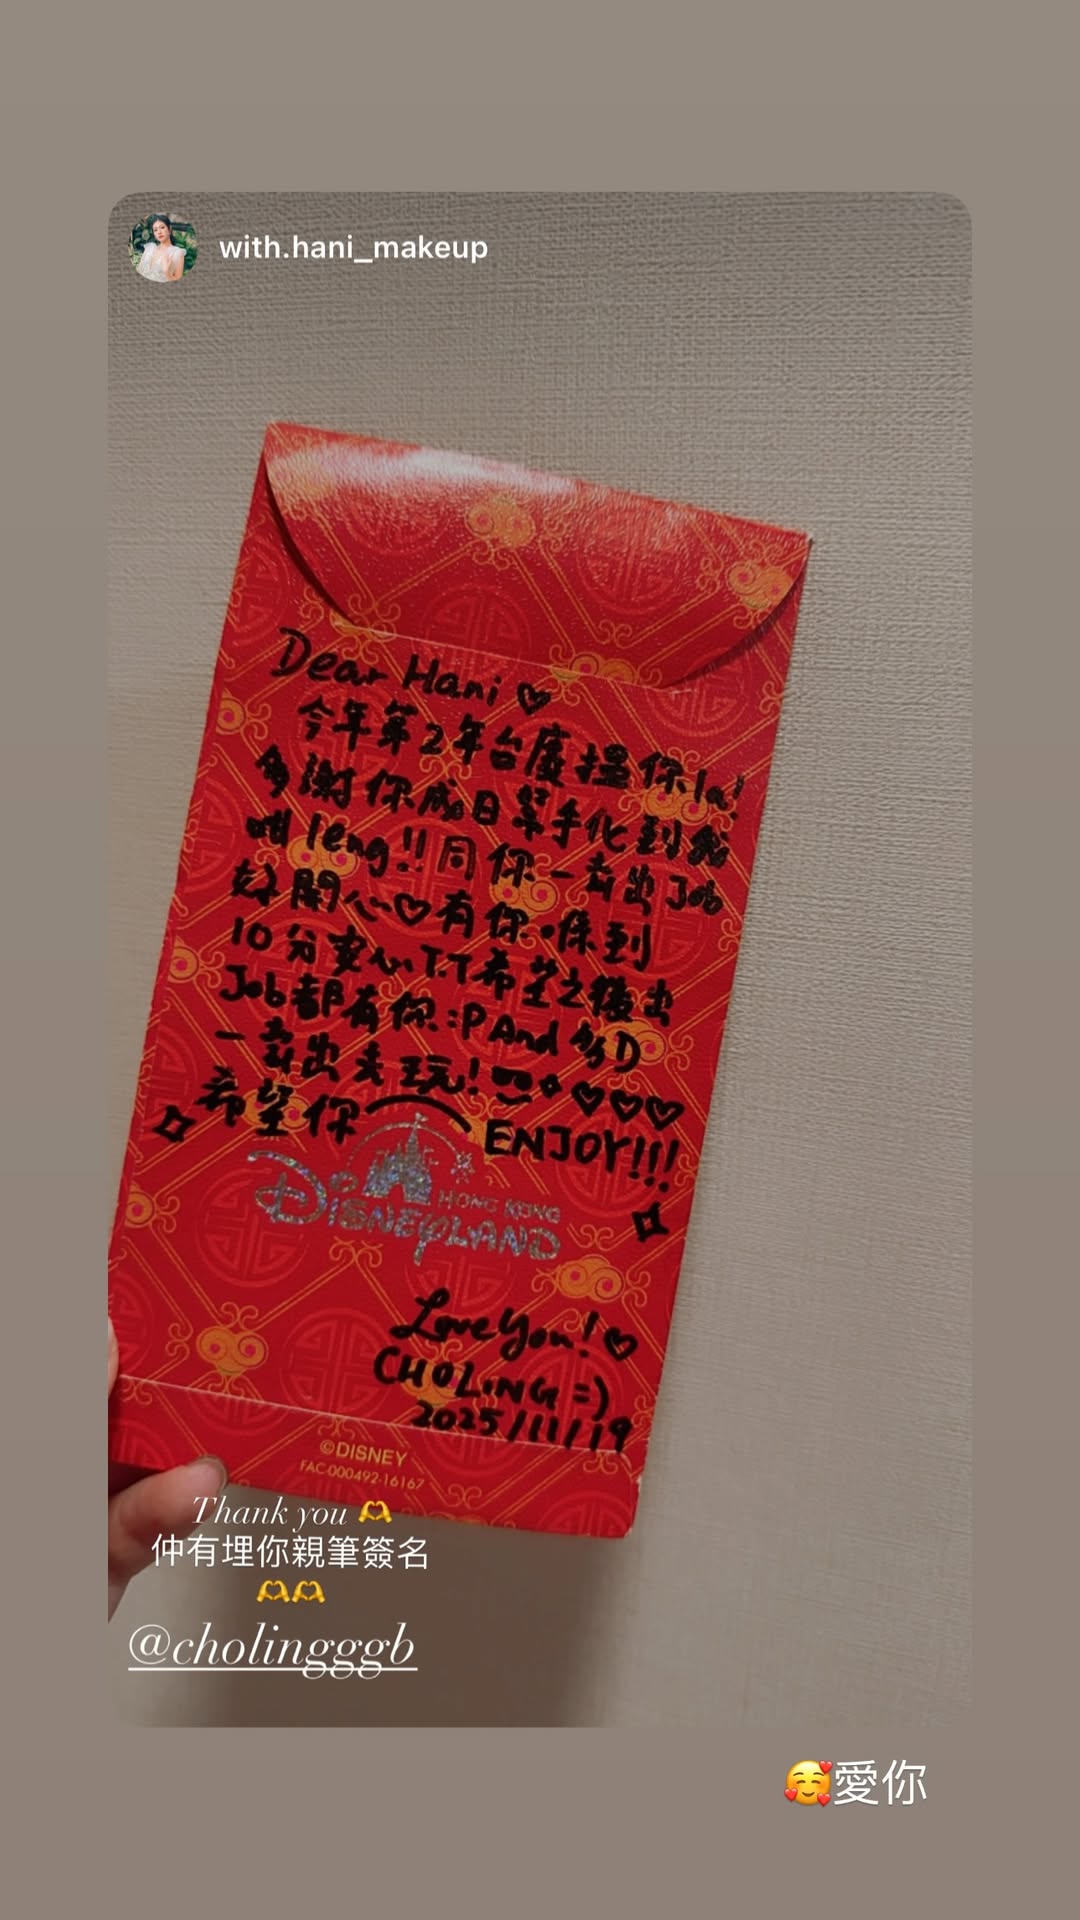 with.hani_makeup
Dear Hani ♡
今年第2年台慶搵你la!
多謝你成日幫手化到我
咁leng!! 同你一齊出Job
好開心♡有你係到
10分安心TT希望之後出
Job都有你:P And 多D
一齊出去玩! ♡♡♡
希望你 ENJOY!!!
HONG KONG
DISNEYLAND
Love You! ♡
CHOLING =)
2025/11/19
©DISNEY
FAC-000492-16167
Thank you 🫶
仲有埋你親筆簽名
🫶🫶
@cholingggb
🥰愛你